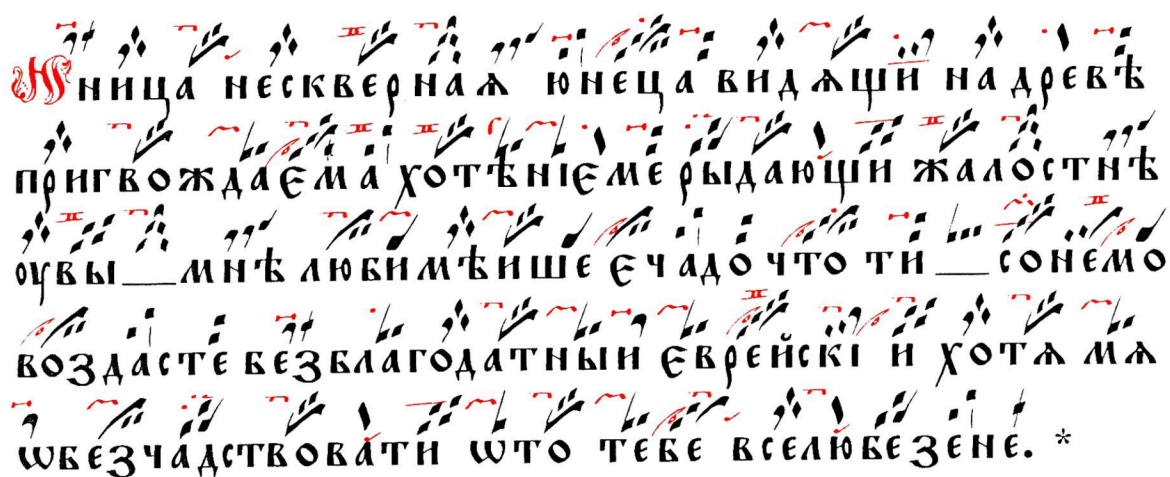 Юница нескверная юнеца видящи на древѣ
пригвождаема хотѣнїеме рыдающи жалостнѣ
оувы __ мнѣ любимѣише є чадо что ти __ сонемо
воздасте безблагодатныи єврейскі и хотѧ мѧ
ѡбезчадствовати ѡто тебе вселюбезене. *